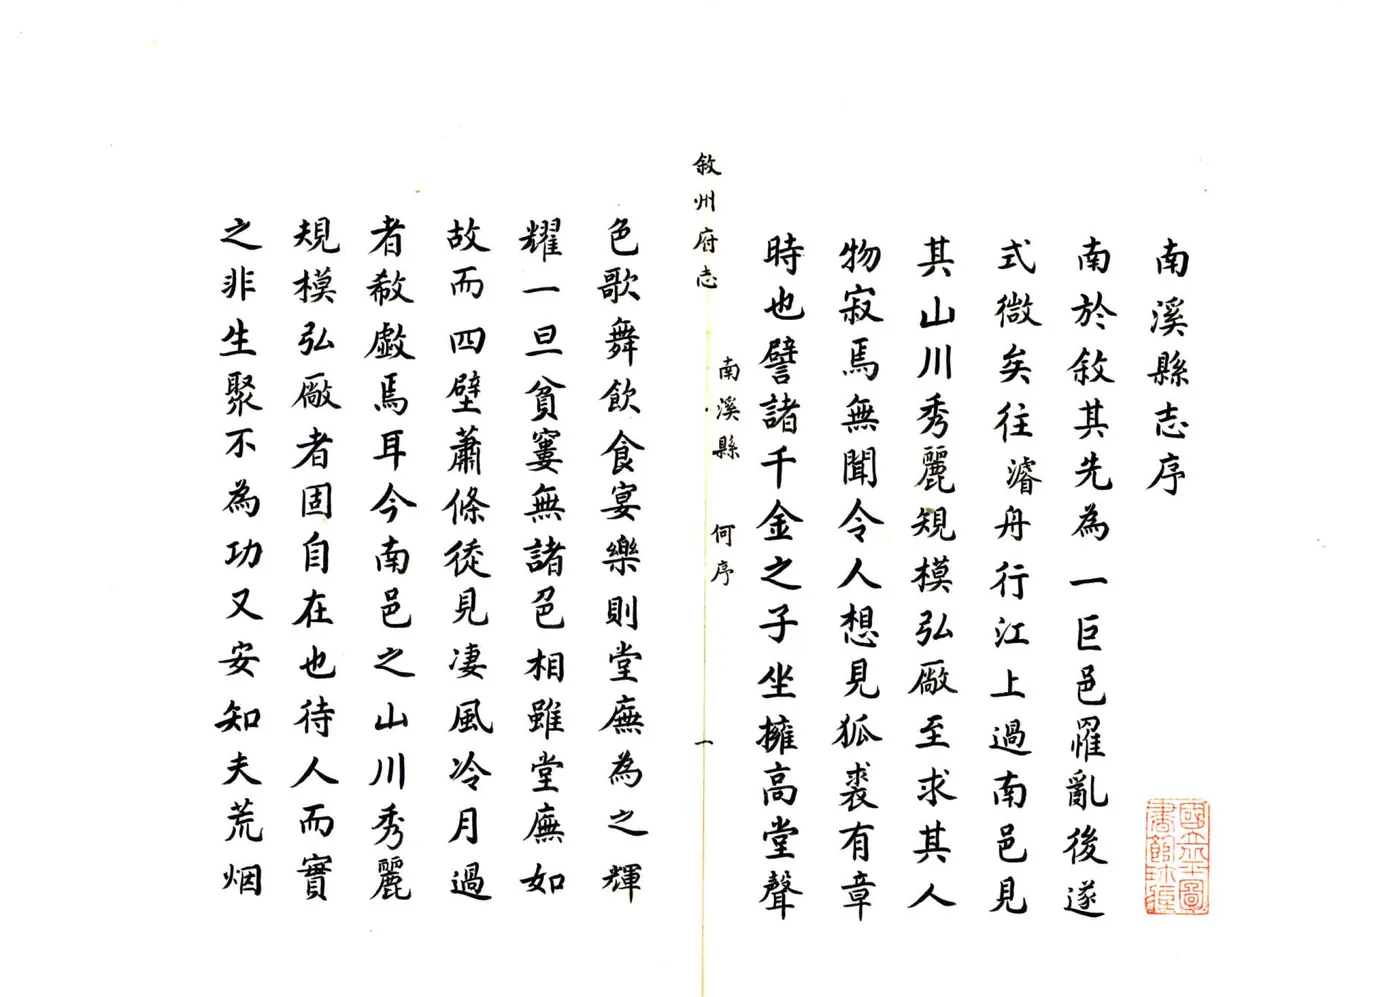 南溪縣志序
南於敘其先為一巨邑罹亂後遂
式微矣往濬舟行江上過南邑見
其山川秀麗規模弘厰至求其人
物寂焉無聞令人想見狐裘有章
時也譬諸千金之子坐擁高堂聲
敘州府志 南溪縣 何序 一
色歌舞飲食宴樂則堂廡為之輝
耀一旦貧窶無諸色相雖堂廡如
故而四壁蕭條徒見凄風冷月過
者欷歔焉耳今南邑之山川秀麗
規模弘厰者固自在也待人而實
之非生聚不為功又安知夫荒烟
國立北平圖書館珍藏